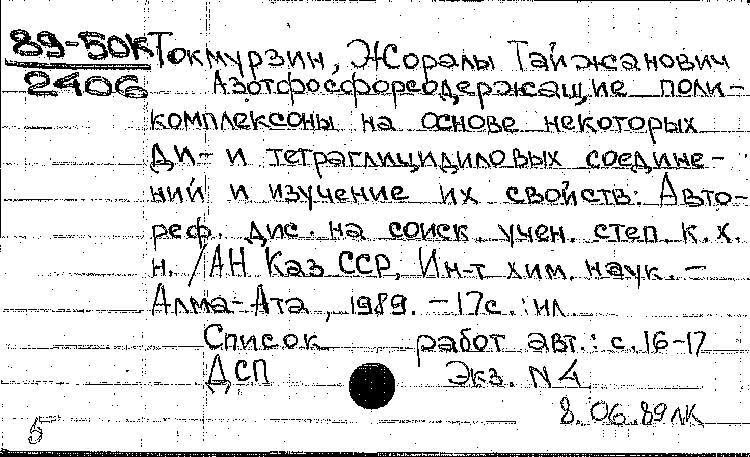 89-50к Токмурзин, Жоралы Тайжанович
2406 Азотфосфорсодержащие поли-
комплексоны на основе некоторых
ди- и тетраглицидиловых соедине-
ний и изучение их свойств: Авто-
реф. дис. на соиск. учен. степ. к. х.
н. / АН КазССР, Ин-т хим. наук. -
Алма-Ата, 1989. - 17с. : ил
Список работ авт.: с. 16-17
ДСП Экз. N 4
8.06.89 лк
5